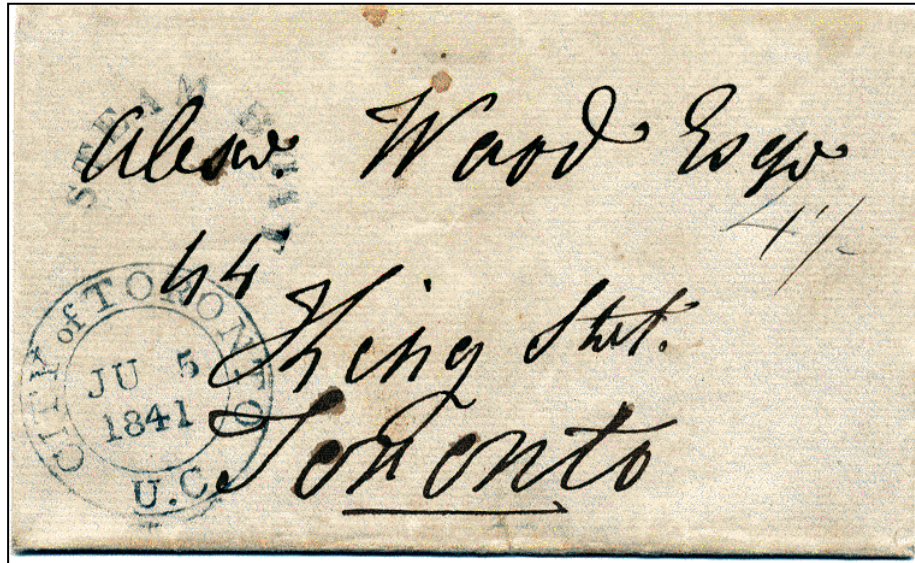 STEAM
Alexr. Wood Esqr
44
King Street.
Toronto
CITY of TORONTO
JU 5
1841
U.C.